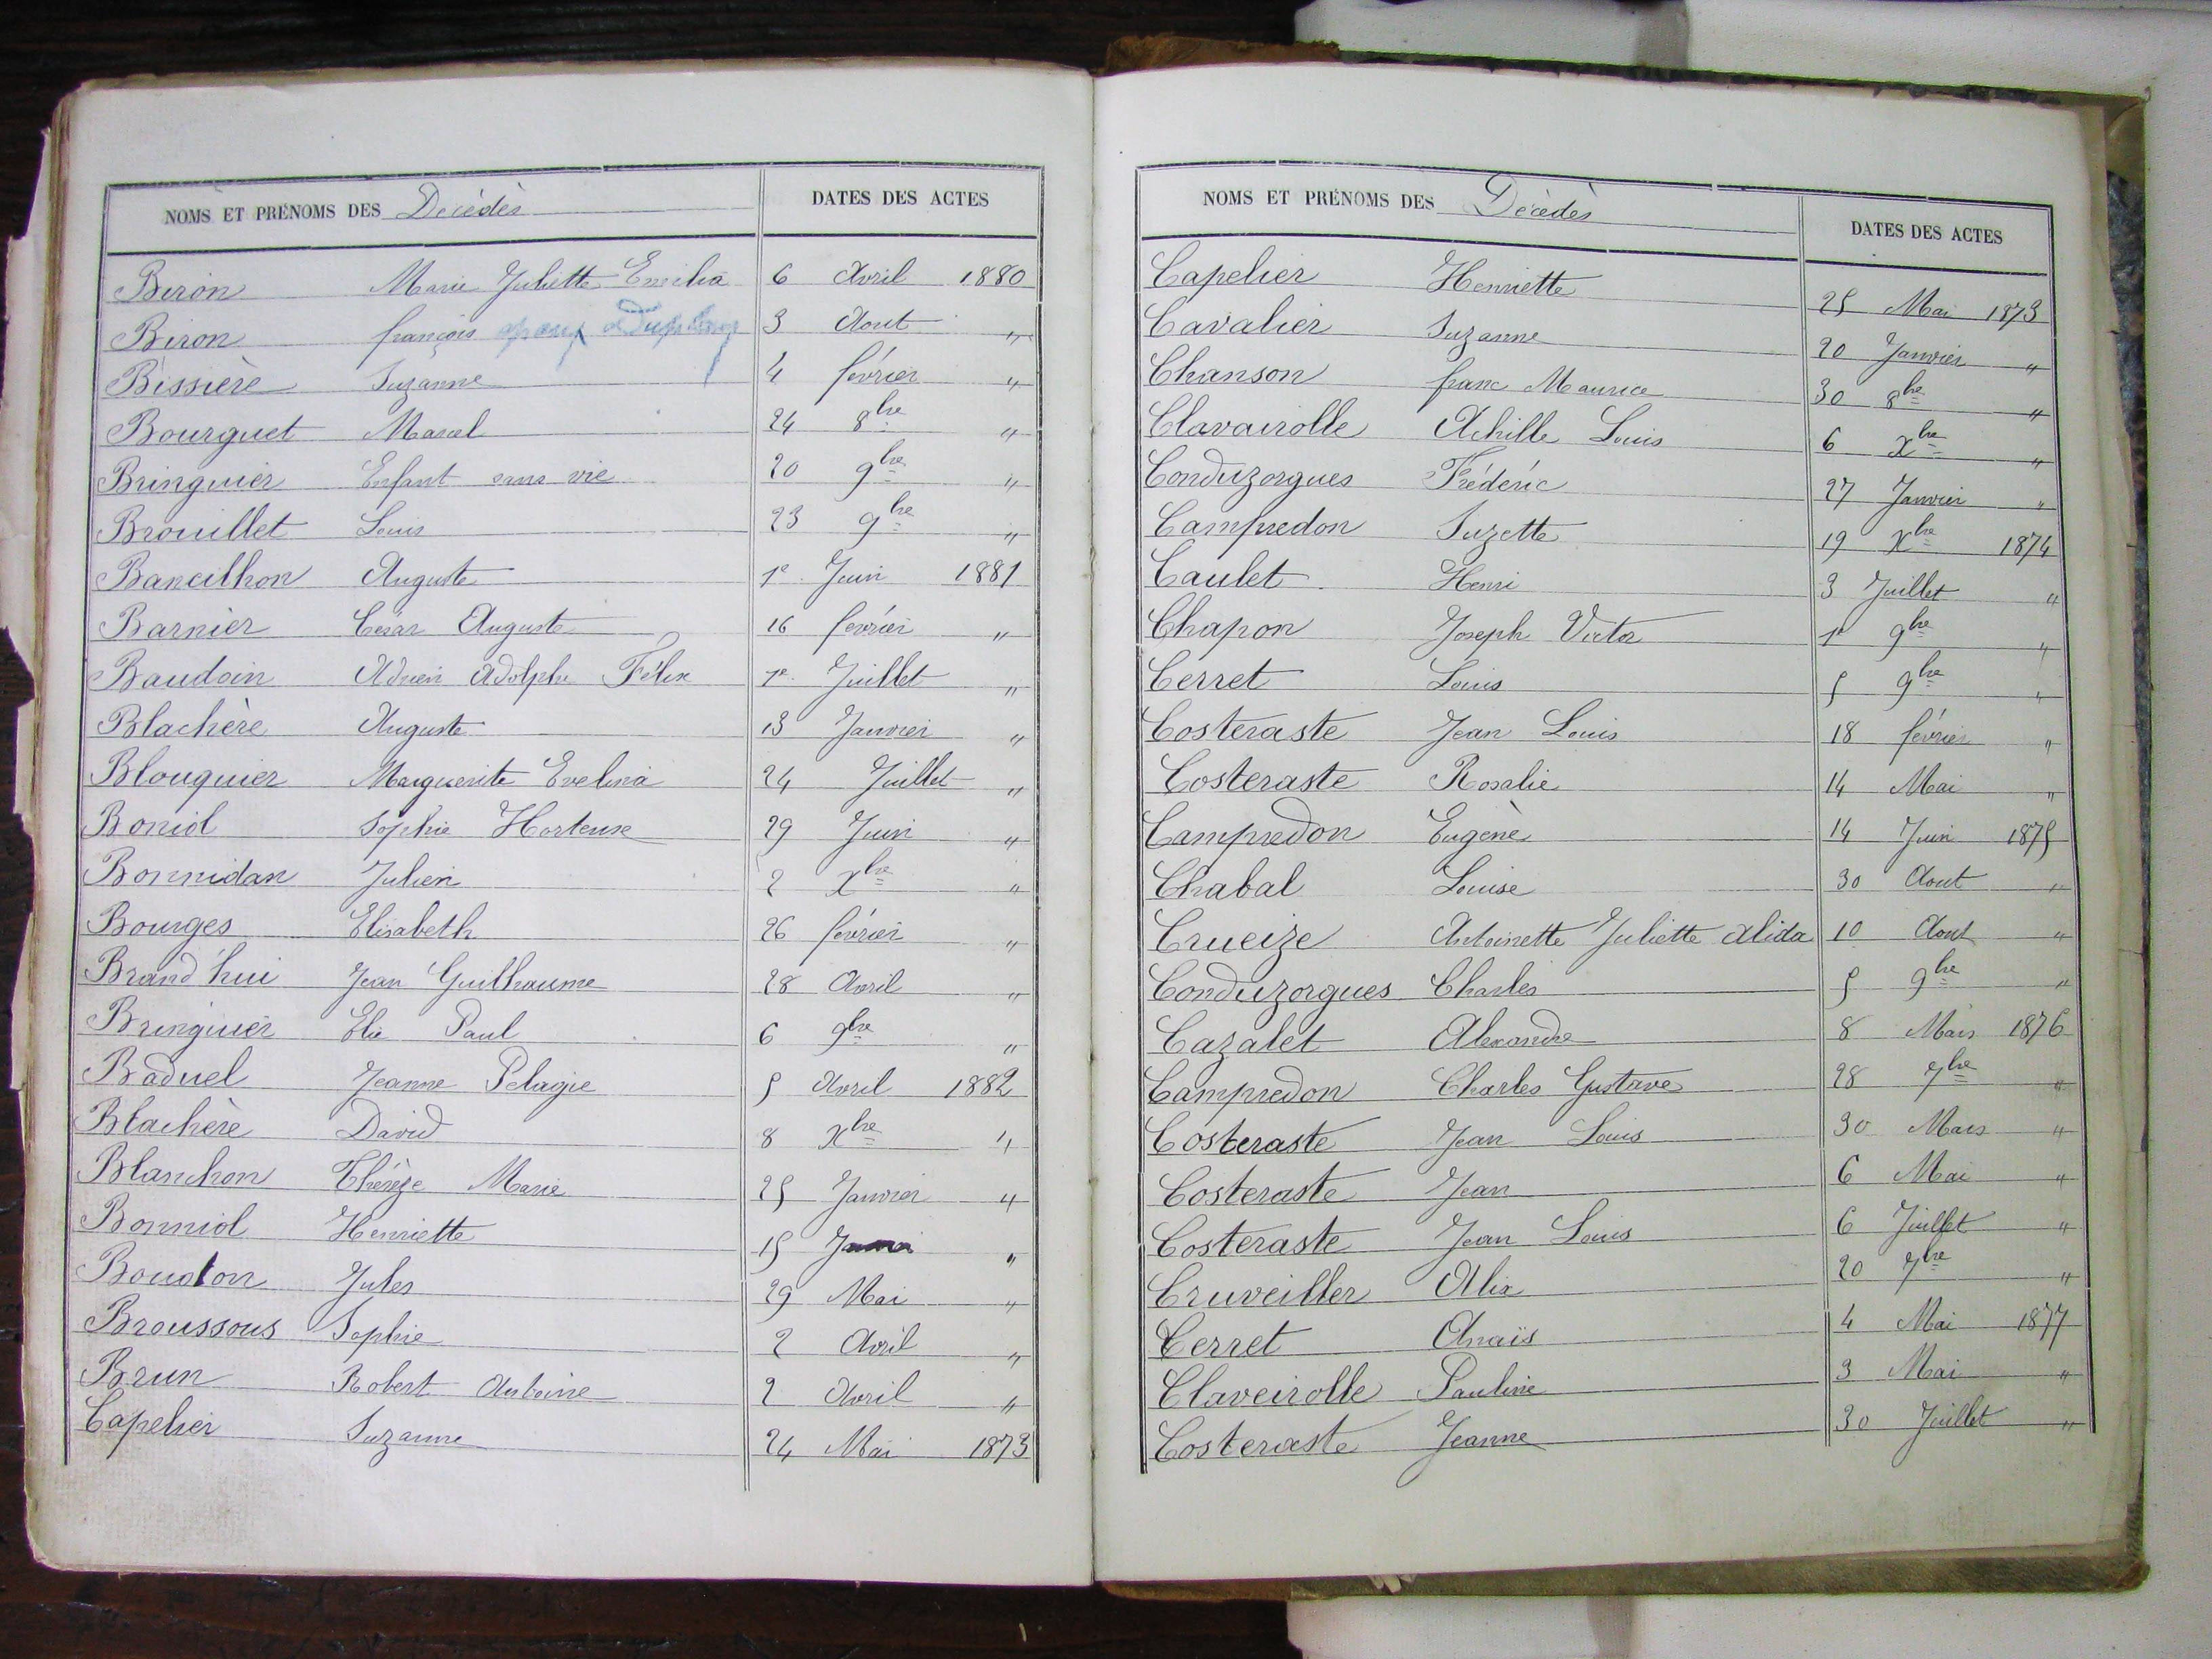 NOMS ET PRÉNOMS DES Décédés DATES DES ACTES
Biron Marie Juliette Emilia 6 Avril 1880
Biron françois époux 3 Aout "
Bissière Suzanne 4 février "
Bourguet Marcel 24 8bre "
Bringuier Enfant sans vie 20 9bre "
Brouillet Louis 23 9bre "
Bancilhon Auguste 1e Juin 1881
Barnier César Auguste 16 février "
Baudoin Adrien Adolphe Félix 1e Juillet "
Blachère Auguste 13 Janvier "
Blouquier Marguerite Evelina 24 Juillet "
Boniol Sophie Hortense 29 Juin "
Bonnidan Julien 2 Xbre "
Bourges Elisabeth 26 février "
Brand'hui Jean Guilhaume 28 Avril "
Bringuier Elie Paul 6 9bre "
Baduel Jeanne Pelagie 5 Avril 1882
Blachère David 8 Xbre "
Blanchon Thérèze Marie 25 Janvier "
Bonniol Henriette 15 "
Boudon Jules 29 Mai "
Broussous Sophie 2 Avril "
Brun Robert Antoine 2 Avril "
Capelier Suzanne 24 Mai 1873
NOMS ET PRÉNOMS DES Décédés DATES DES ACTES
Capelier Henriette 25 Mai 1873
Cavalier Suzanne 20 Janvier "
Chanson franc Maurice 30 8bre "
Clavairolle Achille Louis 6 Xbre "
Conduzorgues Frédéric 27 Janvier "
Campredon Suzette 19 Xbre 1874
Caulet Henri 3 Juillet "
Chapon Joseph Victor 1e 9bre "
Cerret Louis 5 9bre "
Costeraste Jean Louis 18 février "
Costeraste Rosalie 14 Mai "
Campredon Eugène 14 Juin 1875
Chabal Louise 30 Aout "
Crueize Antoinette Juliette Alida 10 Aout "
Conduzorgues Charles 5 9bre "
Cazalet Alexandre 8 Mars 1876
Campredon Charles Gustave 28 7bre "
Costeraste Jean Louis 30 Mars "
Costeraste Jean 6 Mai "
Costeraste Jean Louis 6 Juillet "
Cruveiller Alix 20 7bre "
Cerret Anaïs 4 Mai 1877
Claveirolle Pauline 3 Mai "
Costeraste Jeanne 30 Juillet "